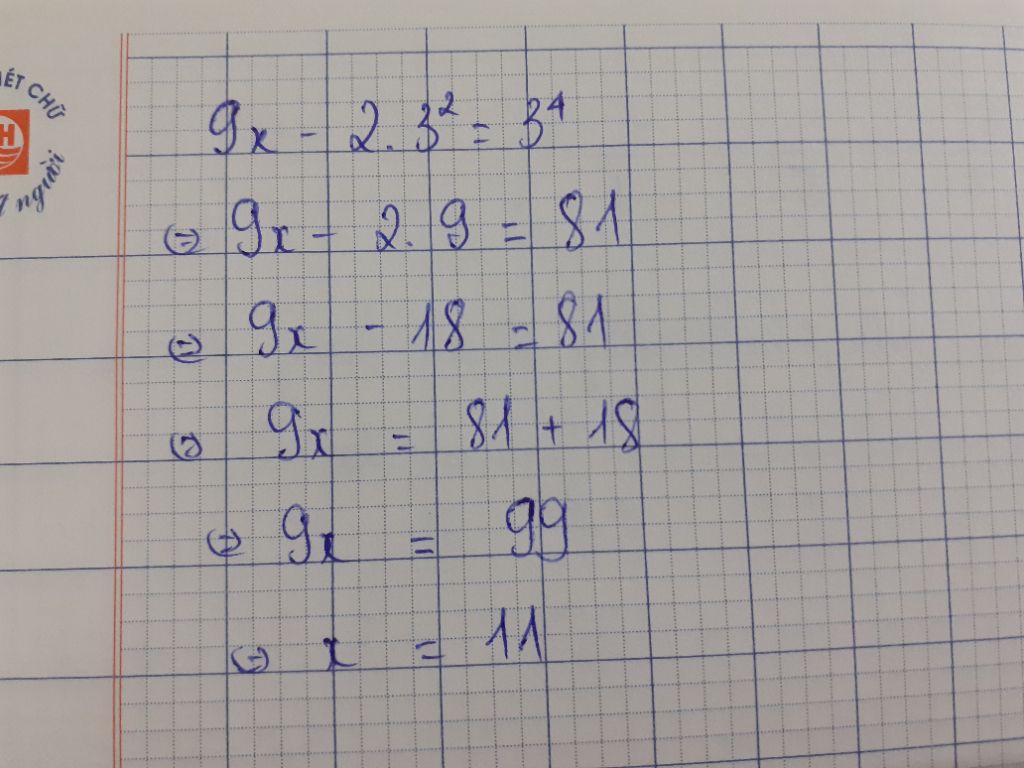 ÉT CHỮ
H
người.
9x - 2. 3² = 3⁴
⇔ 9x - 2. 9 = 81
⇔ 9x - 18 = 81
⇔ 9x = 81 + 18
⇔ 9x = 99
⇔ x = 11